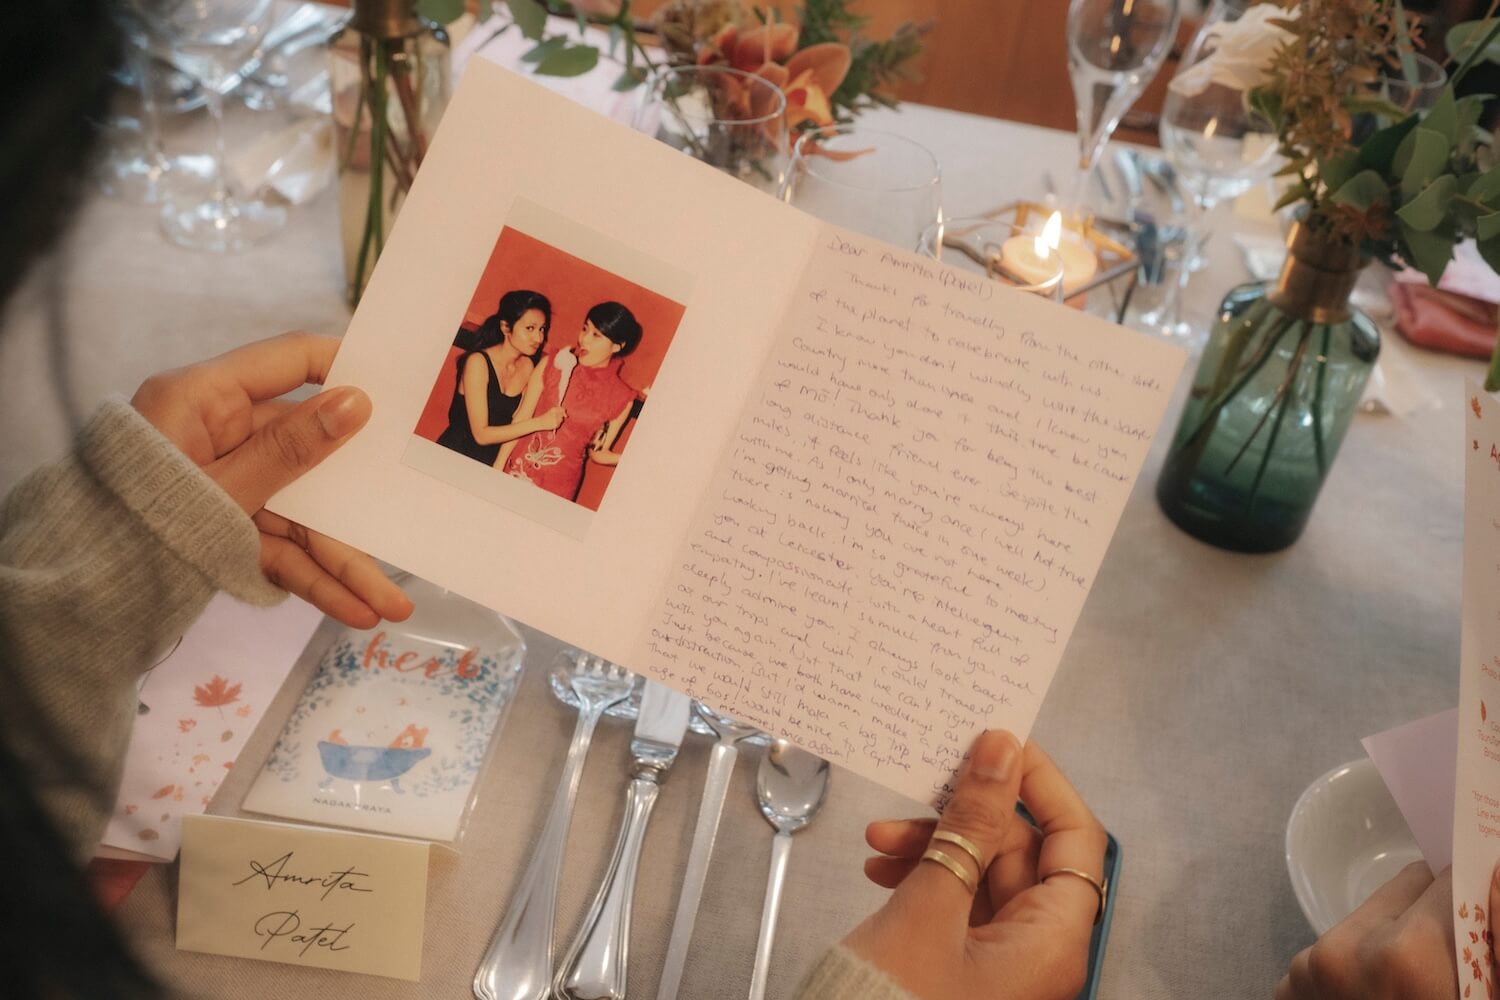 Dear Amrita (Patel)
Thanks for travelling from the other side
of the planet to celebrate with us.
I know you don't usually visit the same
country more than once and I know you
would have only done it this time because
of ME! Thank you for being the best
long distance friend ever. Despite the
miles, it feels like you're always here
with me. As I only marry once (well not true
I'm getting married twice in one week)
there is noway you are not here.
Looking back, I'm so grateful to meeting
you at Leicester. You're intelligent
and compassionate with a heart full of
empathy. I've learnt so much from you and
deeply admire you. I always look back
at our trips and wish I could travel
with you again. Not that we can't right
Just because we both have weddings as
our distraction. But I'd wanna make a
that we would still make a big trip before
age of 60s! Would be nice to capture
our memories once again!
herb
NAGAKURAYA
Amrita
Patel